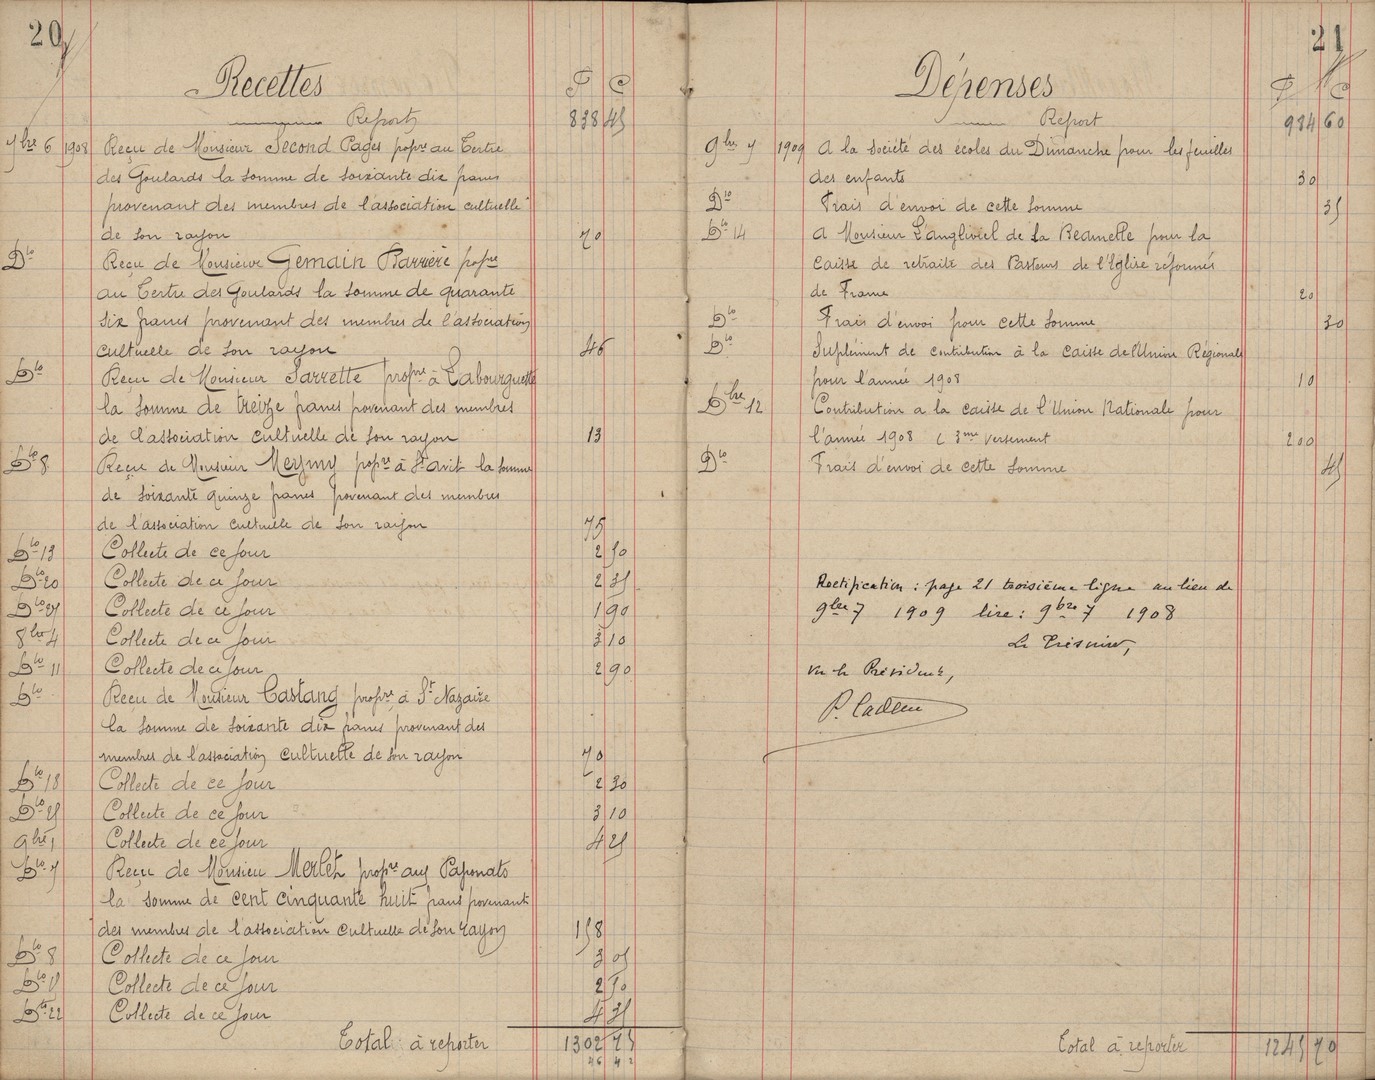 20
Recettes
F C
Report 838 45
7bre 6 1908 Reçu de Monsieur Second Pagès propre au Tertre
des Goulards la somme de soixante dix francs
provenant des membres de l'association cultuelle
de son rayon 70
Dto Reçu de Monsieur Gemain Barrière propre
au Tertre des Goulards la somme de quarante
six francs provenant des membres de l'association
cultuelle de son rayon 46
Dto Reçu de Monsieur Sarrette propre à Labourguette
la somme de treize francs provenant des membres
de l'association cultuelle de son rayon 13
Dto 8 Reçu de Monsieur Meymy propre à St Avit la somme
de soixante quinze francs provenant des membres
de l'association cultuelle de son rayon 75
Dto 13 Collecte de ce jour 2 50
Dto 20 Collecte de ce jour 2 35
Dto 27 Collecte de ce jour 1 90
8bre 4 Collecte de ce jour 3 10
Dto 11 Collecte de ce jour 2 90
Dto Reçu de Monsieur Castang propre à St Nazaire
la somme de soixante dix francs provenant des
membres de l'association cultuelle de son rayon 70
Dto 18 Collecte de ce jour 2 30
Dto 25 Collecte de ce jour 3 10
9bre 1 Collecte de ce jour 4 25
Dto 7 Reçu de Monsieu Merlet propre aux Paponats
la somme de cent cinquante huit francs provenant
des membres de l'association cultuelle de son rayon 158
Dto 8 Collecte de ce jour 3 05
Dto 15 Collecte de ce jour 2 50
Dto 22 Collecte de ce jour 4 35
Total à reporter 1302 75
46 42
21
Dépenses
F C
Report 984 60
9bre 7 1909 A la société des écoles du Dimanche pour les feuilles
des enfants 30
Dto Frais d'envoi de cette somme 35
Dto 14 A Monsieur L'angliviel de La Beamelle pour la
Caisse de retraite des Pasteurs de l'Eglise réformés
de France 20
Dto Frais d'envoi pour cette somme 30
Dto Suplément de contribution à la caisse de l'Union Régionale
pour l'année 1908 10
Dbre 12 Contribution a la caisse de l'Union Nationale pour
l'année 1908 ( 3me versement 200
Dto Frais d'envoi de cette somme 45
Rectification : page 21 troisième ligne au lieu de
9bre 7 1909 lire : 9bre 7 1908
Le Trésorier,
Vu le Président,
P. Cadeu
Total à reporter 1245 70